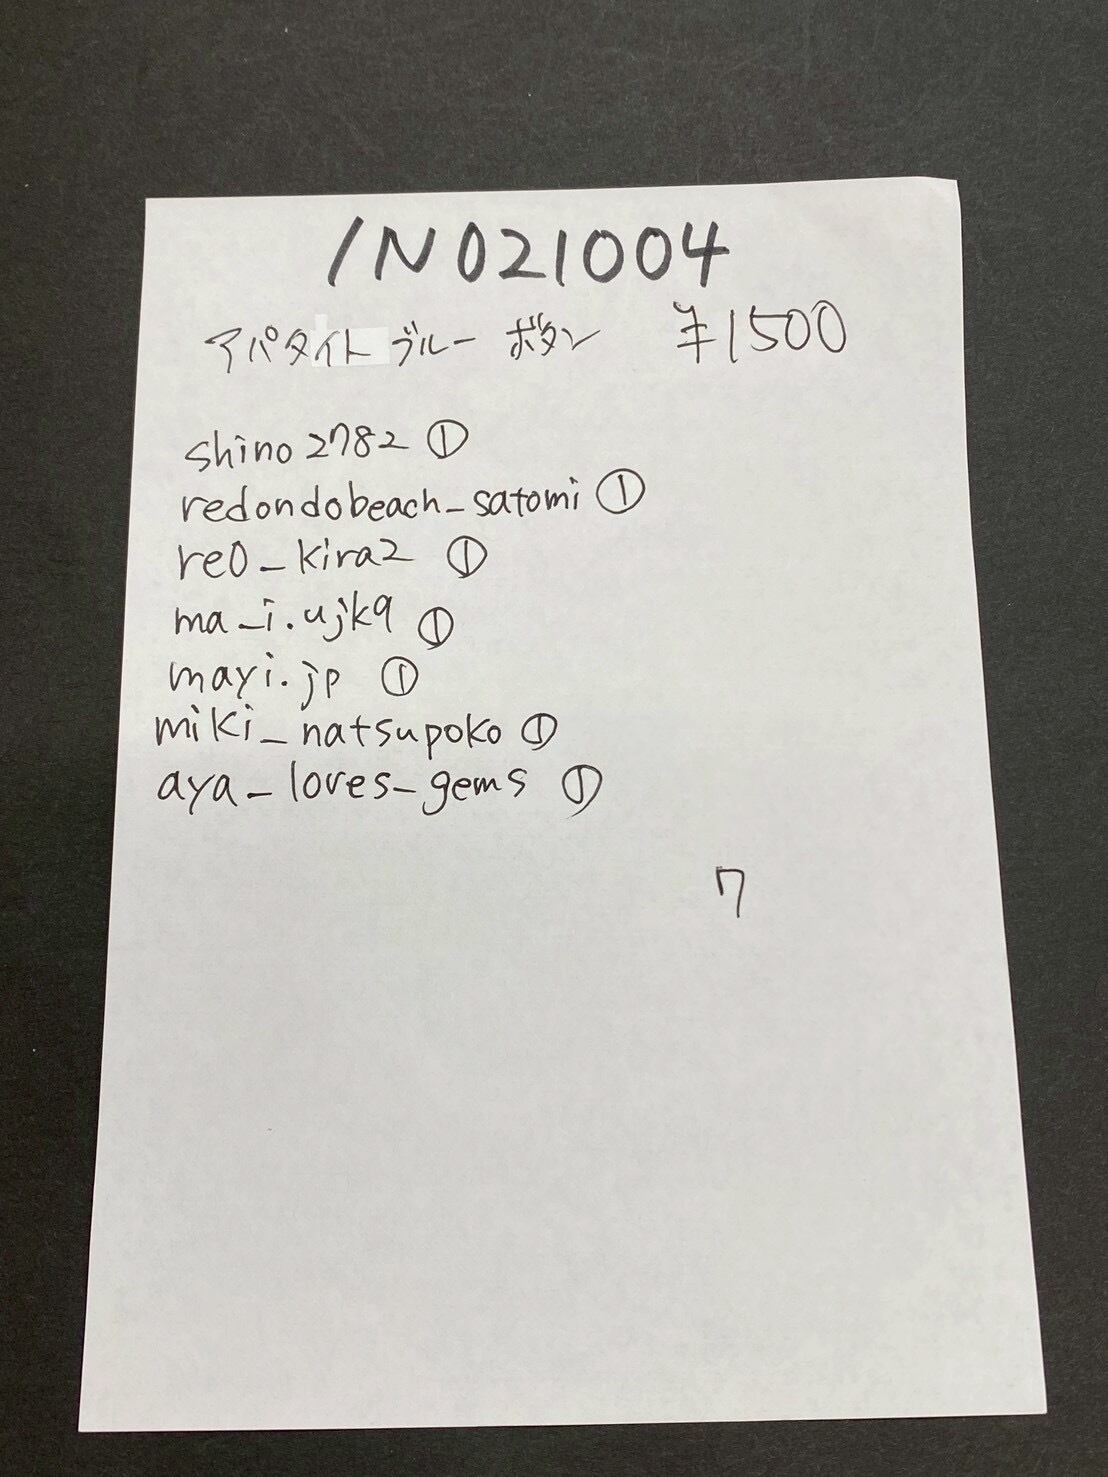 IN021004
アパタイトブルー ボタン ¥1500
shino2782 ①
redondobeach_satomi ①
re0_kira2 ①
ma_i.ujk9 ①
mayi.jp ①
miki_natsupoko ①
aya_loves_gems ①
7